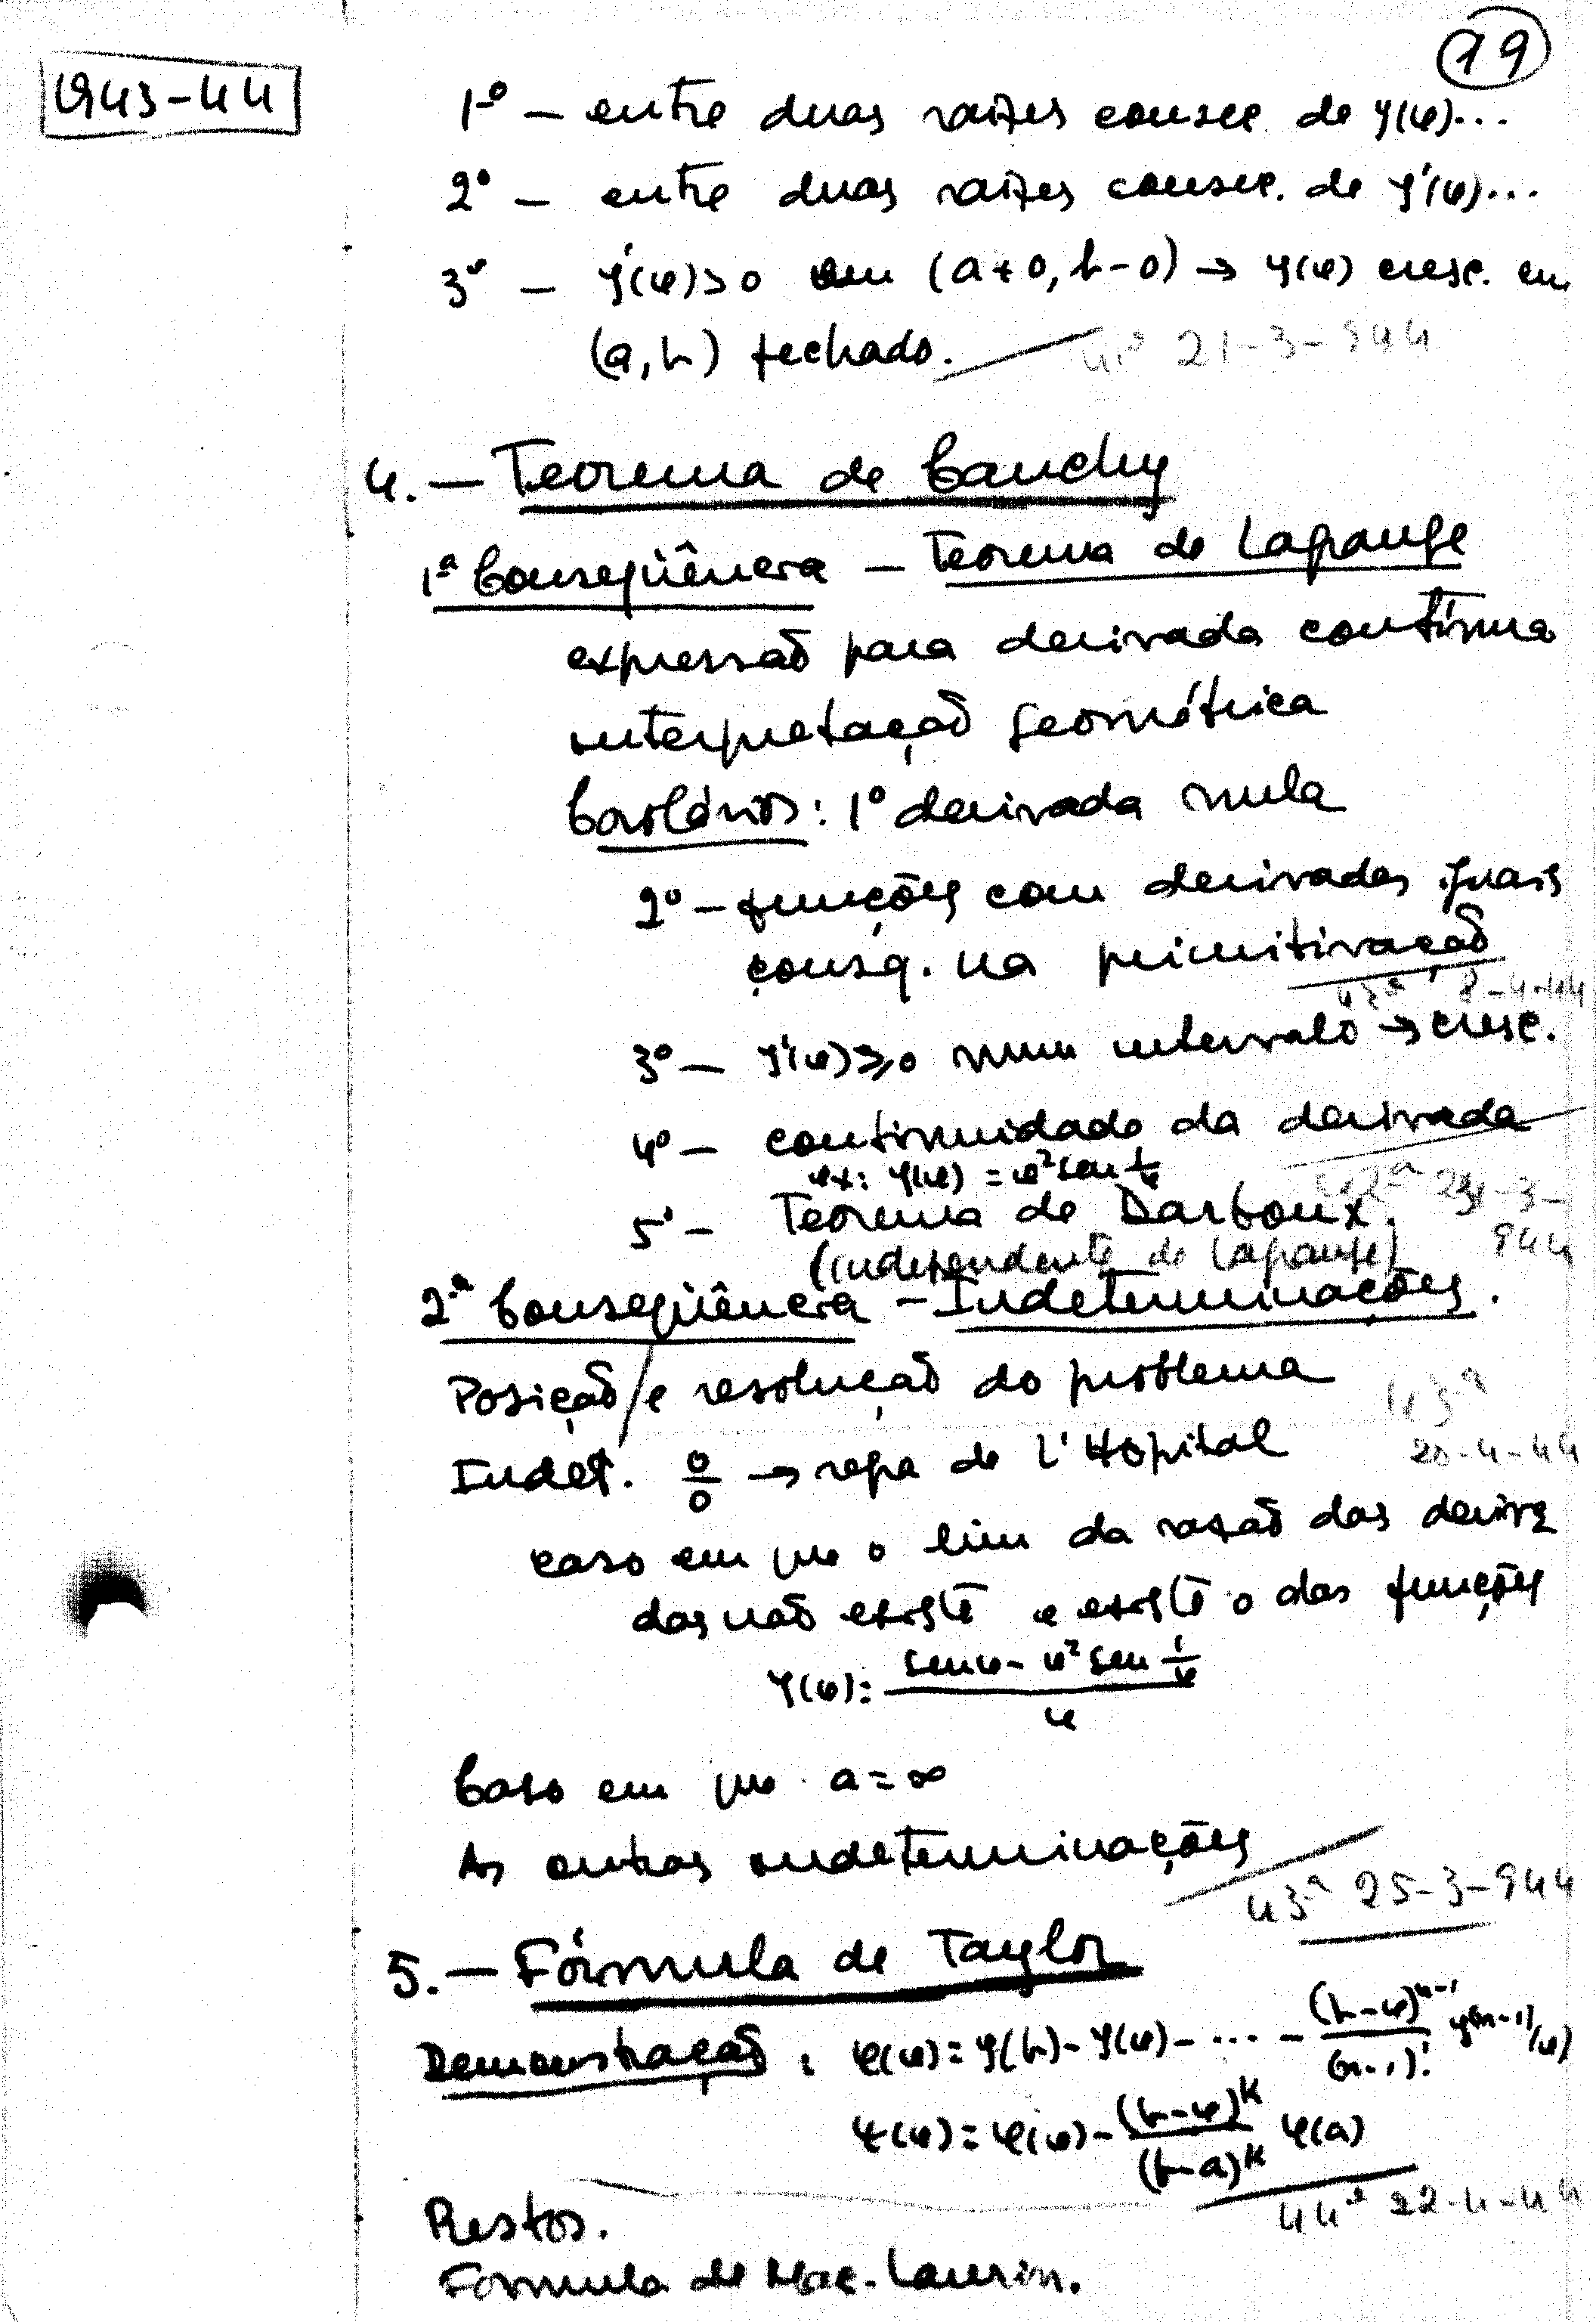 19
1943-44
1º - entre duas raízes consec. de f(x)...
2º - entre duas raízes consec. de f'(x)...
3º - f'(x)>0 em (a+0, b-0) → f(x) cresc. em
(a,b) fechado. 41ª 21-3-944
4. - Teorema de Cauchy
1ª Conseqüência - Teorema de Lagrange
expressão para derivada contínua
interpretação geométrica
Corolários: 1º derivada nula
2º - funções com derivadas iguais
consq. na primitivação
8-4-44
3º - f'(x)⩾0 num intervalo → cresc.
4º - continuidade da derivada
ex: f(x) = x² sen 1/x
42ª -3-
5º - Teorema de Darboux.
944
(independente de Lagrange)
2ª Conseqüência - Indeterminações.
Posição / e resolução do problema
43ª
Indet. 0/0 → regra de L'Hôpital
20-4-44
caso em que o lim da razão das deriva
das não existe e existe o das funções
f(x) = (sen x - x² sen 1/x)/x
Caso em que a = ∞
As outras indeterminações
43ª 25-3-944
5. - Fórmula de Taylor
Demonstração: φ(x) = f(b) - f(x) - ... - (b-x)ⁿ⁻¹/(n-1)! f⁽ⁿ⁻¹⁾(x)
ψ(x) = φ(x) - (b-x)ᵏ/(b-a)ᵏ φ(a)
44ª 22-4-44
Restos.
Fórmula de Mac-Laurin.